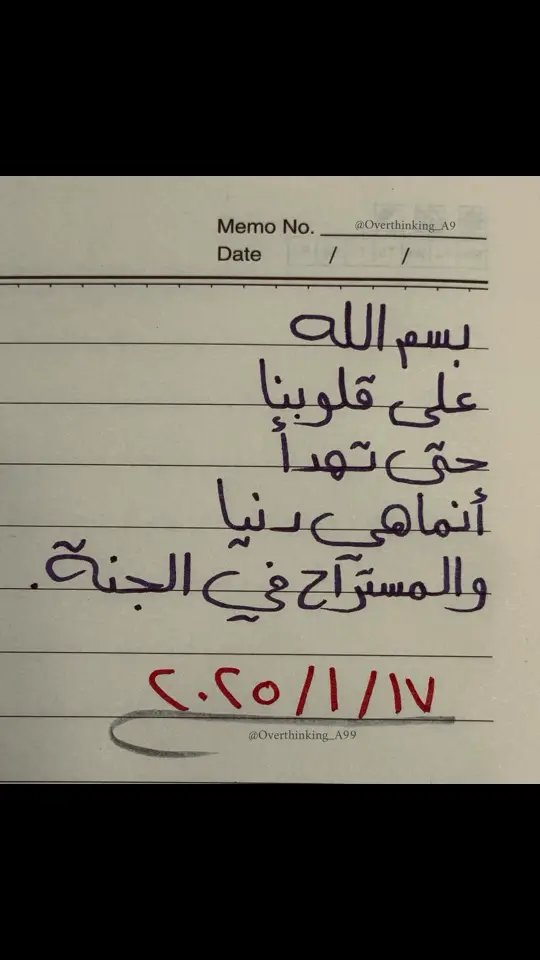 Memo No. @Overthinking_A9
Date / /
بسم الله
على قلوبنا
حتى تهدأ
أنماهي دنيا
والمسترآح في الجنة.
٢٠٢٥/١/١٧
@Overthinking_A99